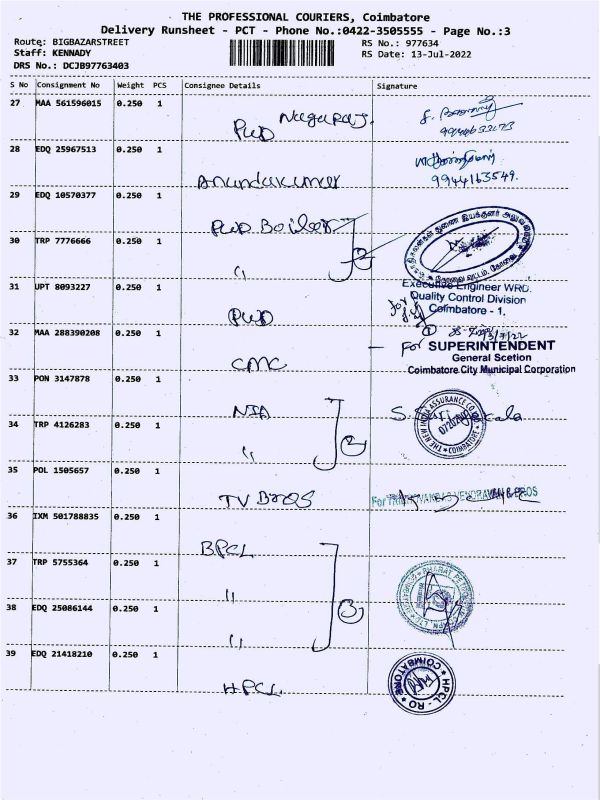 THE PROFESSIONAL COURIERS, Coimbatore
Delivery Runsheet - PCT - Phone No.:0422-3505555 - Page No.:3
Route: BIGBAZARSTREET
RS No.: 977634
Staff: KENNADY
RS Date: 13-Jul-2022
DRS No.: DCJB97763403
S No Consignment No Weight PCS Consignee Details Signature
27 MAA 561596015 0.250 1
Nagaraj.
PWD
28 EDQ 25967513 0.250 1
Anandakumar
9944163549.
29 EDQ 10570377 0.250 1
PWD Boiler
30 TRP 7776666 0.250 1
" 2
31 UPT 8093227 0.250 1
Executive Engineer WRD.
Quality Control Division
Coimbatore - 1.
PWD
for
32 MAA 288390208 0.250 1
For SUPERINTENDENT
General Scetion
Coimbatore City Municipal Corporation
CMC
33 PON 3147878 0.250 1
NIA
THE NEW INDIA ASSURANCE CO.
COIMBATORE
34 TRP 4126283 0.250 1
" 2
35 POL 1505657 0.250 1
TV Bros
36 IXM 501788835 0.250 1
BPCL
37 TRP 5755364 0.250 1
" 3
38 EDQ 25086144 0.250 1
"
39 EDQ 21418210 0.250 1
HPCL
COIMBATORE
HPCL - RO